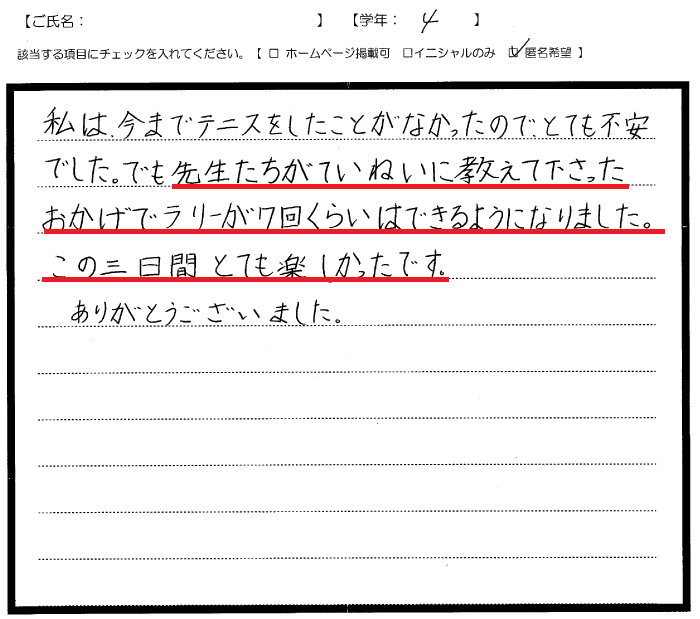 【ご氏名： 】 【学年： 4 】
該当する項目にチェックを入れてください。【 □ ホームページ掲載可 □イニシャルのみ ☑ 匿名希望 】
私は、今までテニスをしたことがなかったので、とても不安
でした。でも先生たちがていねいに教えて下さった
おかげでラリーが7回くらいはできるようになりました。
この三日間とても楽しかったです。
ありがとうございました。